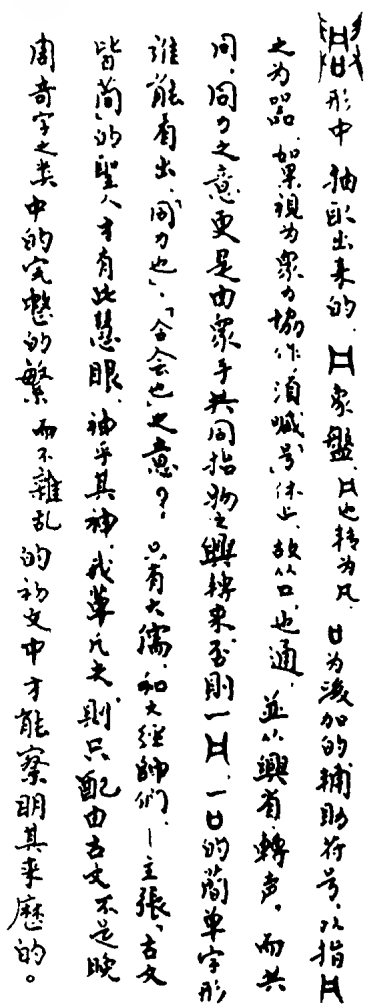 形中抽取出来的、象盤、也转为凡、口为後加的辅助符号、以指
之为器、如果視为眾力協作、須喊"号"休止、故从口、也通、並从興省、轉声。而共
同、同力之意更是由眾手共同指物之興轉来、否則一、一口的簡单字形
誰能看出、"同力也"、"合会也"之意？只有大儒、和大經師们、—主張、"古文
皆简"的聖人才有此慧眼、神乎其神、我草凡夫、則只配由古文不是晚
周奇字之类中的完整的繁而不雜乱的初文中才能察明其来歷的。